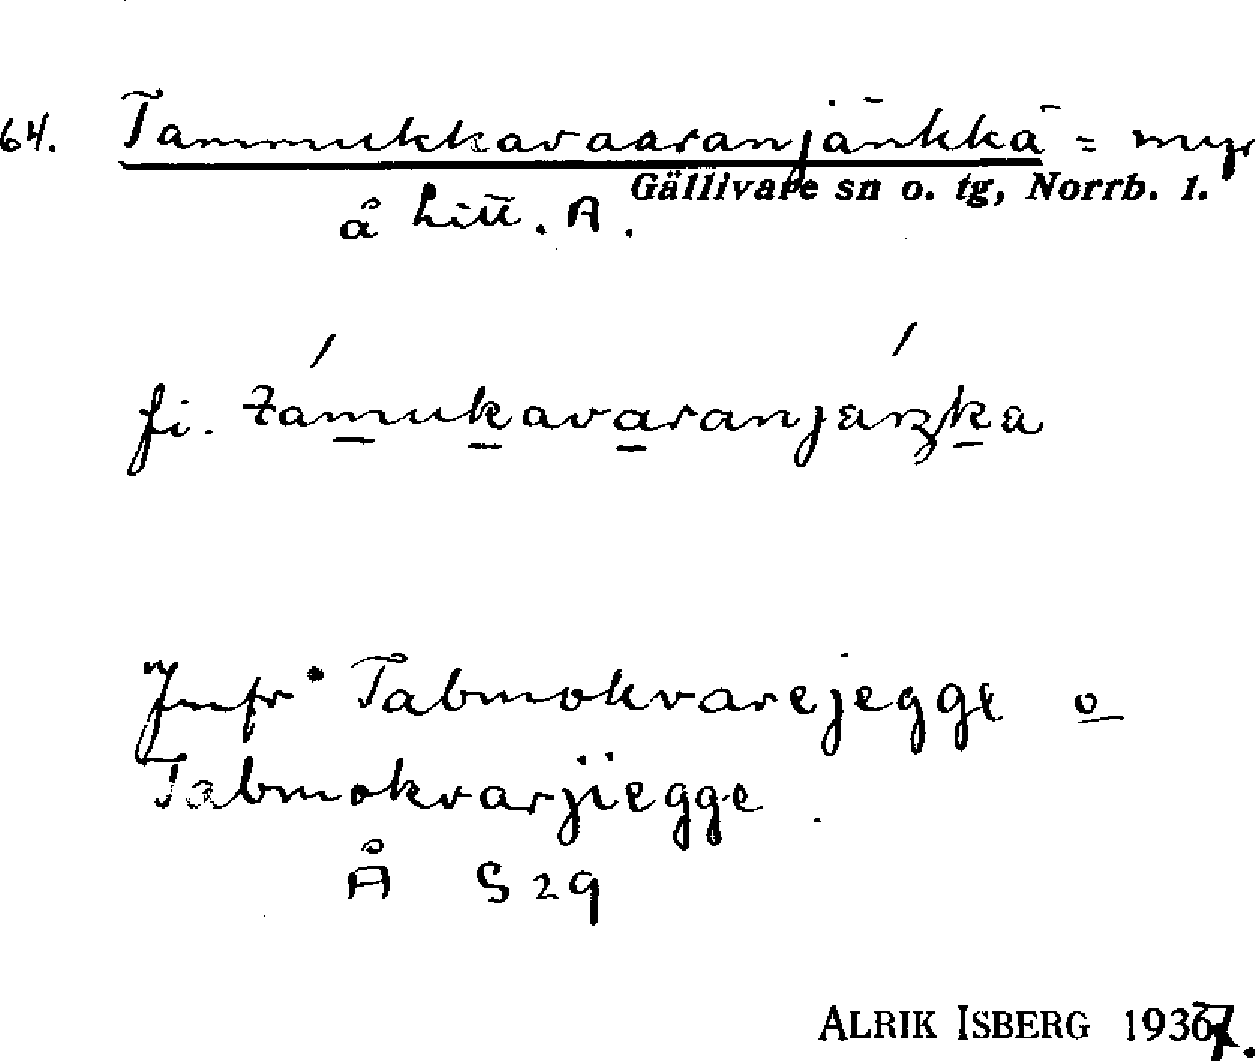 64. Tammukkavaaranjänkkä = myr
Gällivare sn o. tg, Norrb. 1.
å litt. A.
fi. támukavaranjäŋka
Jmfr Tabmokvarejegge o
Tabmokvarjiegge
Å S 29
ALRIK ISBERG 1937.